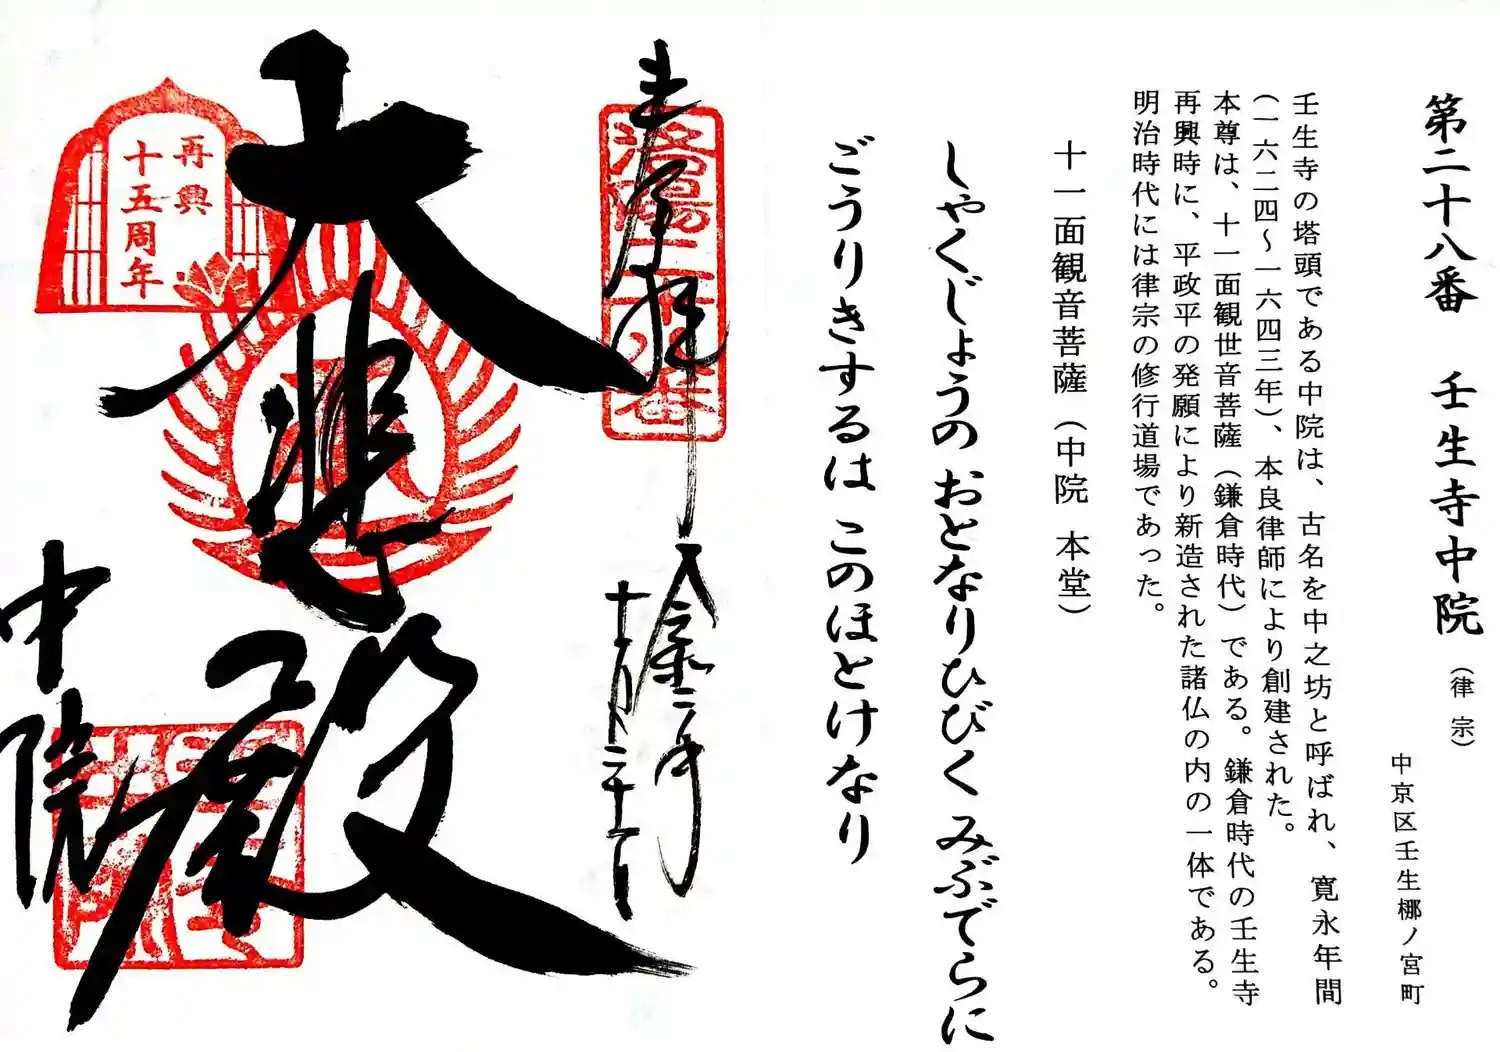 第二十八番 壬生寺中院（律宗）
中京区壬生梛ノ宮町
壬生寺の塔頭である中院は、古名を中之坊と呼ばれ、寛永年間
（一六二四〜一六四三年）、本良律師により創建された。
本尊は、十一面観世音菩薩（鎌倉時代）である。鎌倉時代の壬生寺
再興時に、平政平の発願により新造された諸仏の内の一体である。
明治時代には律宗の修行道場であった。
十一面観音菩薩（中院 本堂）
しゃくじょうの おとなりひびく みぶでらに
ごうりきするは このほとけなり
奉拝
洛陽二十八番
大悲殿
再興
十五周年
中院